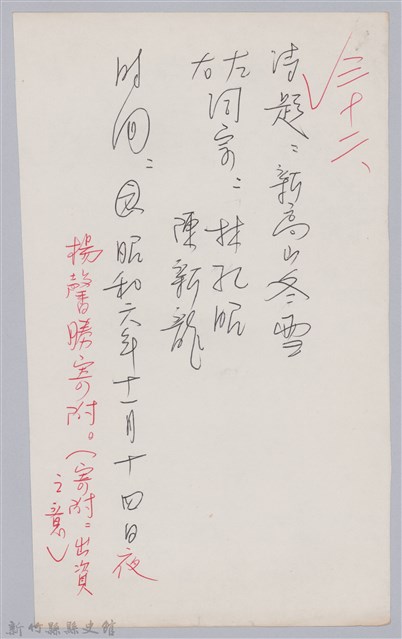 三十二、
诗題：新高山冬雪
左词宗：林孔昭
右　　　陳新龍
时间：昭和六年十一月十四日夜
楊馨勝寄附。（寄附：出資之意）
新竹縣縣史館